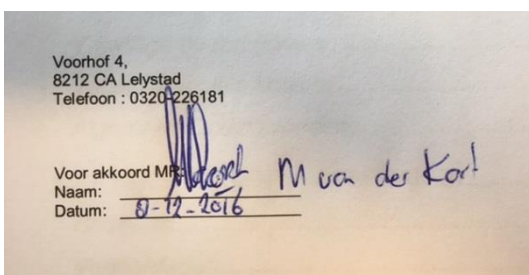 Voorhof 4,
8212 CA Lelystad
Telefoon : 0320-226181
Voor akkoord MR: M van der Kort
Naam:
Datum: 9-12-2016